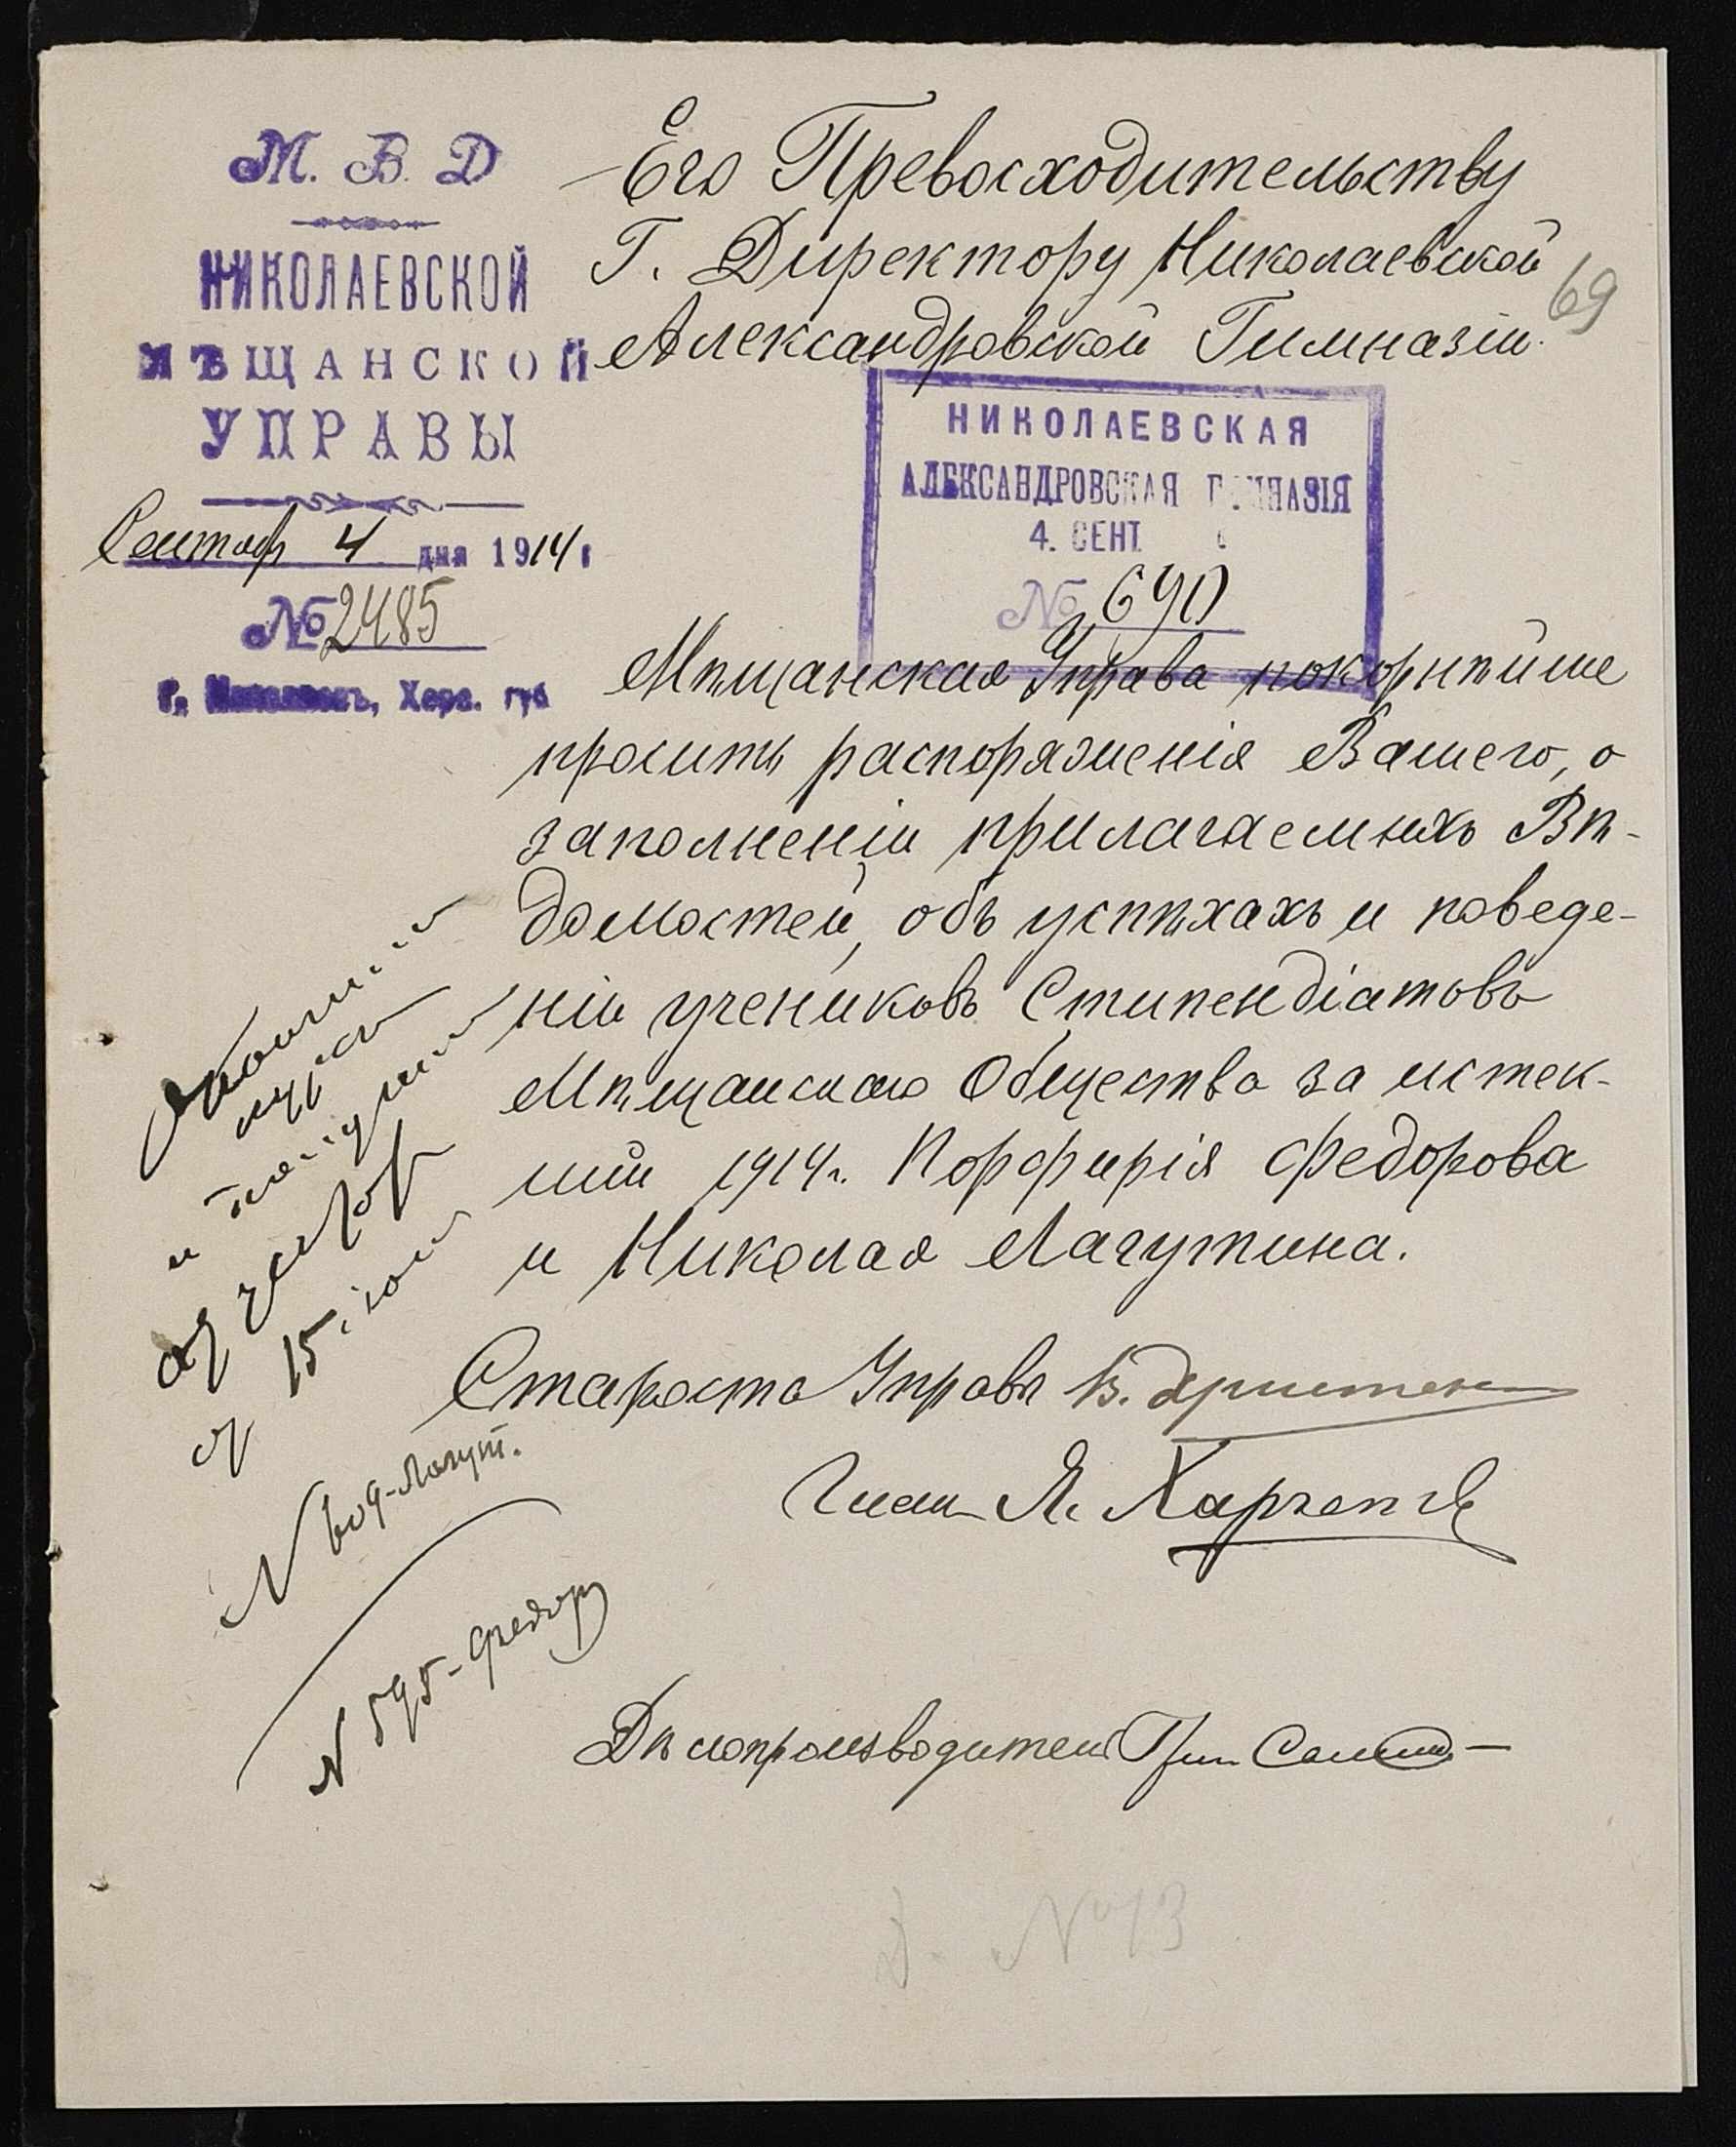 М. В. Д
НИКОЛАЕВСКОЙ
МѢЩАНСКОЙ
УПРАВЫ
Сентябр 4 дня 1914 г
№ 2485
Херс. губ
Его Превосходительству
Г. Директору Николаевской
Александровской Гимназіи.
69
НИКОЛАЕВСКАЯ
АЛЕКСАНДРОВСКАЯ ГИМНАЗІЯ
4. СЕНТ
№ 690
Мѣщанская Управа покорнѣйше
проситъ распоряженія Вашего, о
заполненіи прилагаемыхъ Вѣ-
домостей, объ успѣхахъ и поведе-
ніи учениковъ Стипендіатовъ
Мѣщанскаго Общества за истек-
шій 1914 г. Порфирія Федорова
и Николая Лагутина.
Староста Управы В.
Член Я.
Дѣлопроизводитель
и
15
N Лагут.
N 595 - Федор
№ 13